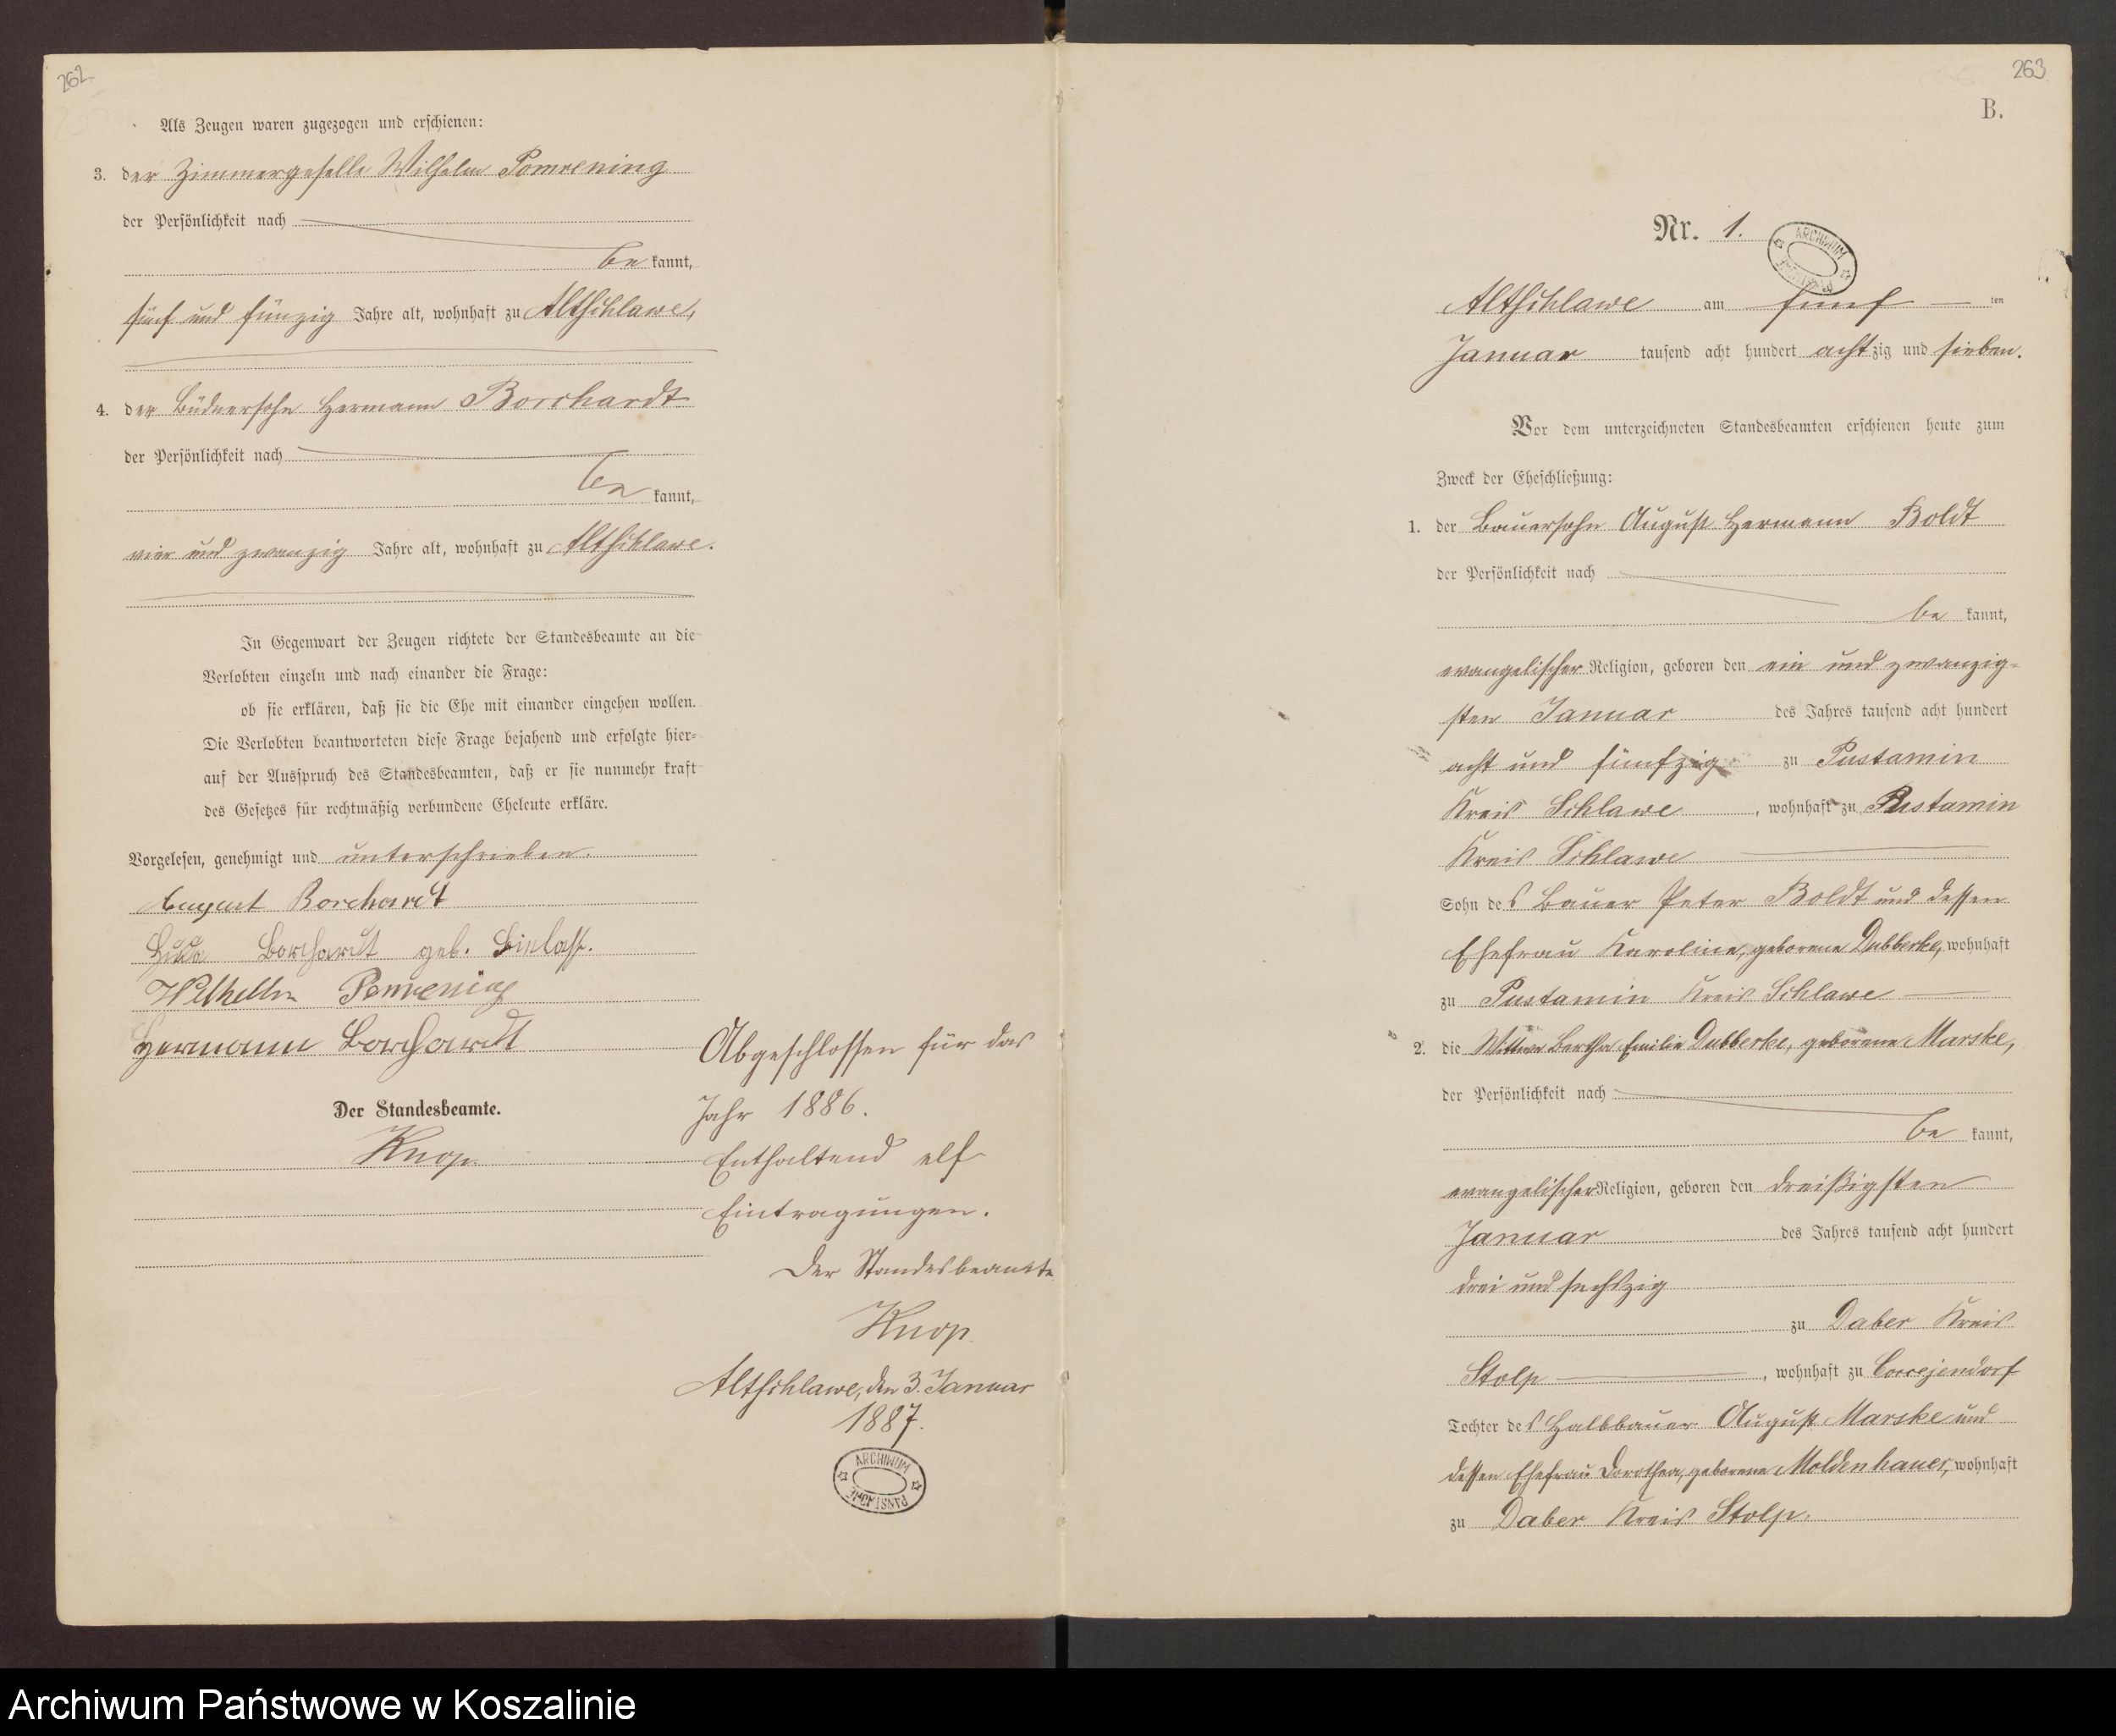 262.
Als Zeugen waren zugezogen und erschienen:
3. der Zimmergeselle Wilhelm Pomrening
der Persönlichkeit nach
be kannt,
fünf und fünzig Jahre alt, wohnhaft zu Altschlawe,
4. der Büdnersohn Hermann Borchardt
der Persönlichkeit nach
be kannt,
vier und zwanzig Jahre alt, wohnhaft zu Altschlawe.
In Gegenwart der Zeugen richtete der Standesbeamte an die
Verlobten einzeln und nach einander die Frage:
ob sie erklären, daß sie die Ehe mit einander eingehen wollen.
Die Verlobten beantworteten diese Frage bejahend und erfolgte hier-
auf der Ausspruch des Standesbeamten, daß er sie nunmehr kraft
des Gesetzes für rechtmäßig verbundene Eheleute erkläre.
Vorgelesen, genehmigt und unterschrieben.
August Borchardt
Borchardt geb.
Wilhelm Pomrening
Hermann Borchardt
Der Standesbeamte.
Knop
Abgeschlossen für das
Jahr 1886.
Enthaltend elf
Eintragungen.
Der Standesbeamte
Knop
Altschlawe, den 3. Januar
1887.
ARCHIWUM PAŃSTWOWE
263
B.
Nr. 1.
ARCHIWUM PAŃSTWOWE
Altschlawe am fünf ten
Januar tausend acht hundert achtzig und sieben.
Vor dem unterzeichneten Standesbeamten erschienen heute zum
Zweck der Eheschließung:
1. der Bauersohn August Hermann Boldt
der Persönlichkeit nach
be kannt,
evangelischer Religion, geboren den ein und zwanzig-
sten Januar des Jahres tausend acht hundert
acht und fünfzig zu Pustamin
Kreis Schlawe, wohnhaft zu Pustamin
Kreis Schlawe
Sohn des Bauer Peter Boldt und dessen
Ehefrau Karoline, geborene Dubberke, wohnhaft
zu Pustamin Kreis Schlawe
2. die Wittwe Bertha Emilie Dubberke, geborene Marske,
der Persönlichkeit nach
be kannt,
evangelischer Religion, geboren den dreißigsten
Januar des Jahres tausend acht hundert
drei und sechszig
zu Daber Kreis
Stolp, wohnhaft zu Coccejendorf
Tochter des Halbbauer August Marske und
dessen Ehefrau Dorothea, geborene Moldenhauer, wohnhaft
zu Daber Kreis Stolp.
Archiwum Państwowe w Koszalinie